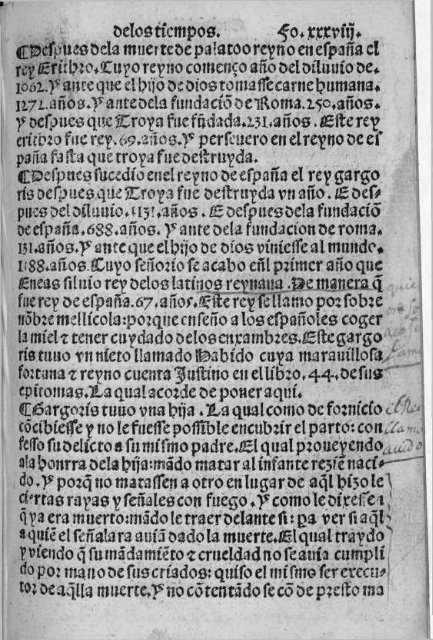 delos tiempos. Fo. xxxviij.
¶Despues dela muerte de palatoo reyno en españa el
rey Erithro. Cuyo reyno començo año del diluuio de.
1062. Y ante que el hijo de dios tomasse carne humana.
1272. años. Y ante dela fundaciõ de Roma. 250. años.
Y despues que Troya fue fũdada. 231. años. Este rey
erithro fue rey. 69. años. Y perseuero en el reyno de es
paña fasta que troya fue destruyda.
¶Despues sucedio enel reyno de españa el rey gargo
ris despues que Troya fue destruyda vn año. E des-
pues del diluuio. 1131. años. E despues dela fundaciõ
de españa. 688. años. Y ante dela fundacion de roma.
131. años. Y ante que el hijo de dios viniesse al mundo.
1188. años. Cuyo señorio se acabo eñl primer año que
Eneas siluio rey delos latinos reynaua. De manera q̃
fue rey de españa. 67. años. Este rey se llamo por sobre
nõbre mellicola: porque enseño a los españoles coger
la miel & tener cuydado delos enxambres. Este gargo
ris tuuo vn nieto llamado Habido cuya marauillosa
fortuna & reyno cuenta Justino en el libro. 44. de sus
epitomas. La qual acorde de poner aqui.
¶Gargoris tuuo vna hija. La qual como de fornicio
cõcibiesse y no le fuesse possible encubrir el parto: con
fesso su delicto a su mismo padre. El qual proueyendo
ala honrra dela hija: mãdo matar al infante rezien naci-
do. Y porq̃ no matassen a otro en lugar de aq̃l hizo le
ciertas rayas y señales con fuego. Y como le dixesse i
q̃ ya era muerto: mãdo le traer delante si: pa ver si aq̃l
a quiẽ el señalara auiã dado la muerte. El qual traydo
y viendo q̃ su mãdamiẽto & crueldad no se auia cumpli
do por mano de sus criados: quiso el mismo ser execu-
tor de aq̃lla muerte. Y no cõtentãdo se cõ de presto ma